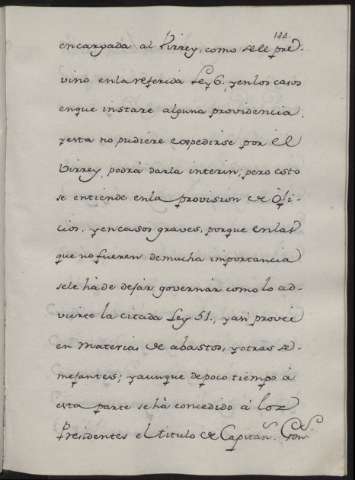 144
encargada al Virrey, como se le pre-
vino en la referida Ley 6. y en los casos
en que instare alguna providencia,
y esta no pudiere expedirse por èl
Virrey, podrá darla interin, pero esto
se entiende en la provision de Ofi-
cios, y en casos graves, porque en las
que no fueren de mucha importancia
se le há de dejar governar como lo ad-
vierte la citada Ley 51., y asi provee
en Materias de abastos, y otras se-
mejantes; y aunque de poco tiempo à
esta parte se hà concedido à los
Presidentes el titulo de Capitan.s Gen.s